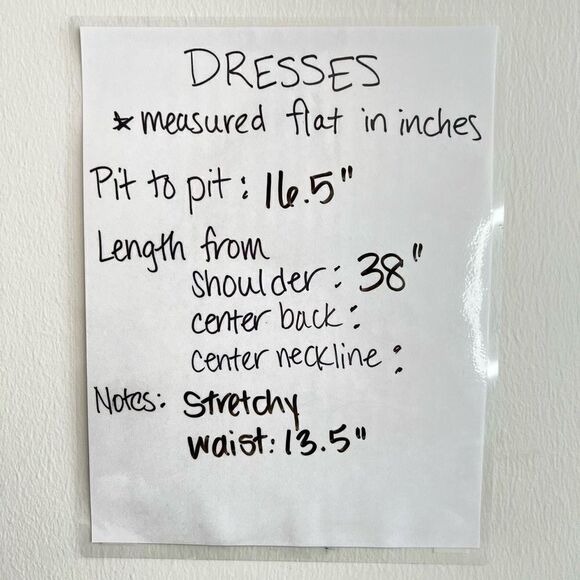 DRESSES
* measured flat in inches
Pit to pit: 16.5"
Length from
shoulder: 38"
center back:
center neckline:
Notes: Stretchy
waist: 13.5"